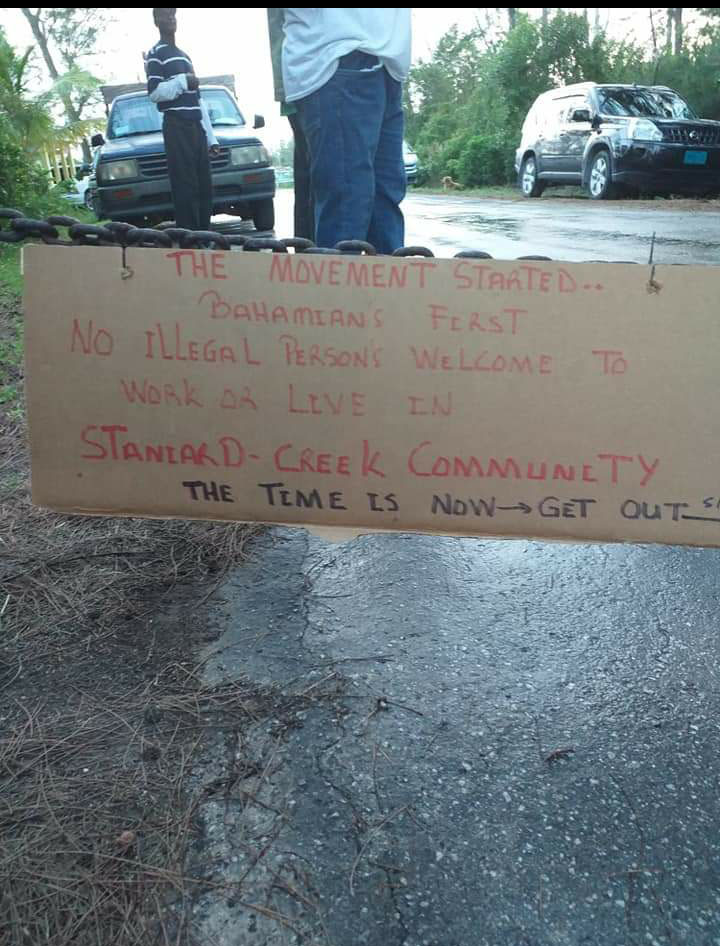 THE MOVEMENT STARTED..
BAHAMIAN'S FIRST
NO ILLEGAL PERSON'S WELCOME TO
WORK OR LIVE IN
STANIARD-CREEK COMMUNITY
THE TIME IS NOW→GET OUT